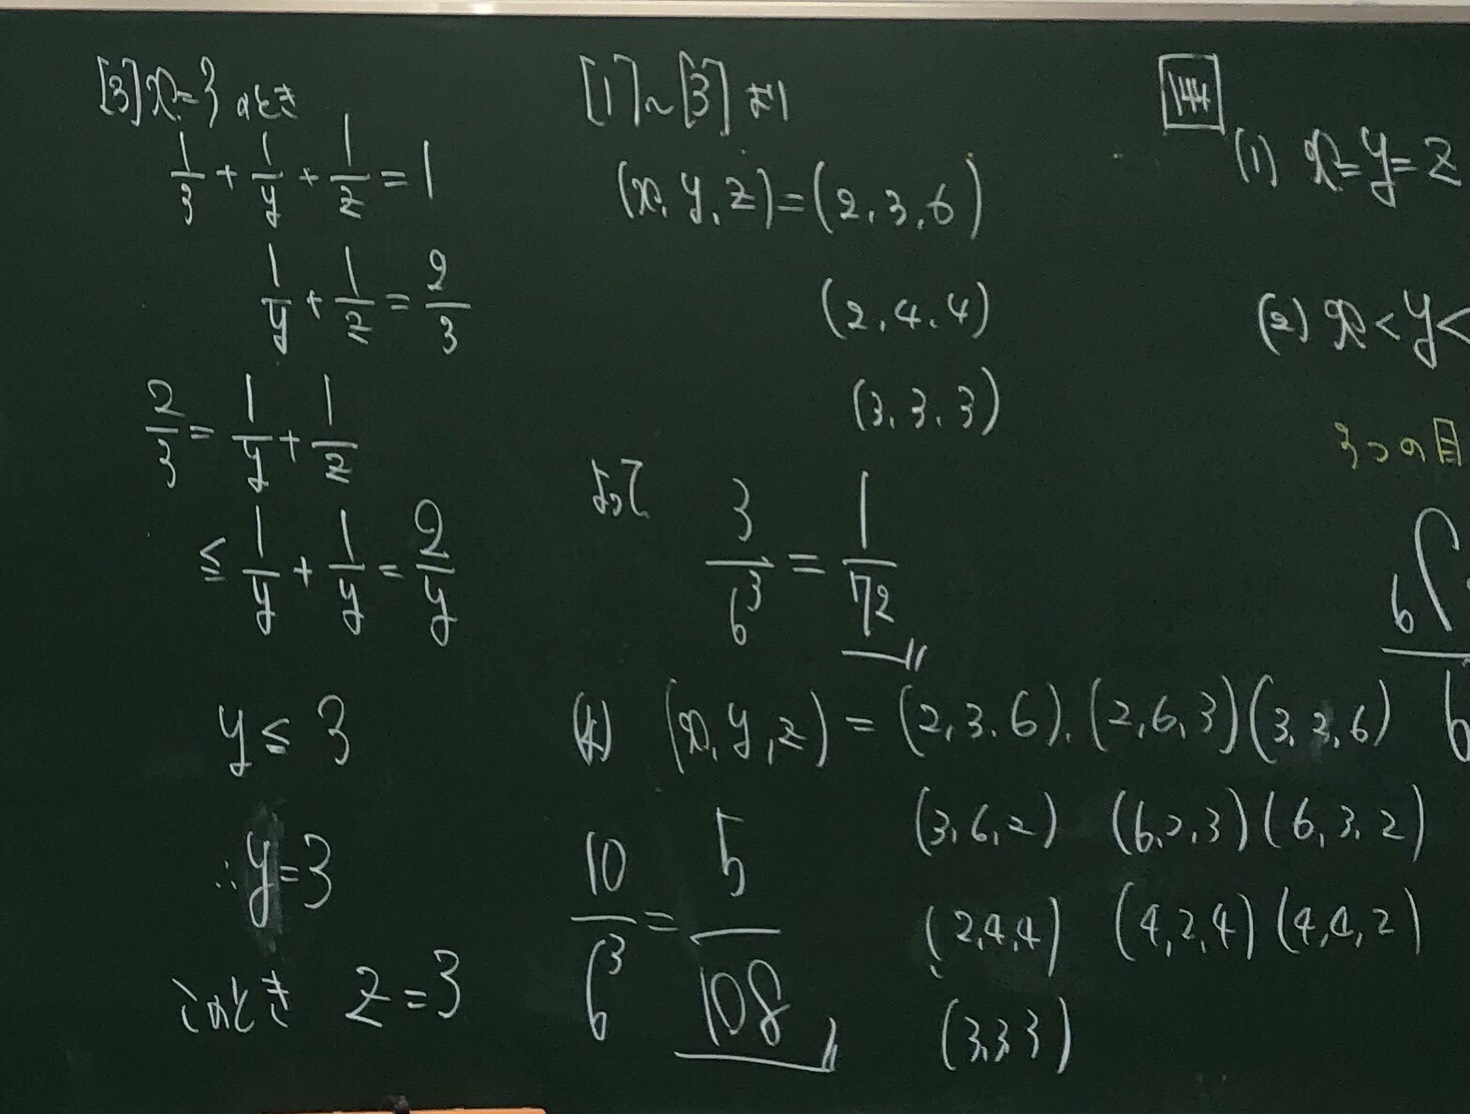 [3] x=3 のとき
1/3 + 1/y + 1/z = 1
1/y + 1/z = 2/3
2/3 = 1/y + 1/z
≤ 1/y + 1/y = 2/y
y ≤ 3
∴ y=3
このとき z=3
[1]~[3] より
(x, y, z)=(2, 3, 6)
(2, 4, 4)
(3, 3, 3)
よって 3/6³ = 1/72
(x, y, z) = (2, 3, 6), (2, 6, 3) (3, 2, 6)
(3, 6, 2) (6, 2, 3) (6, 3, 2)
(2, 4, 4) (4, 2, 4) (4, 4, 2)
(3, 3, 3)
10/6³ = 5/108
144
(1) x=y=z
(2) x<y<
3つの目
6
6